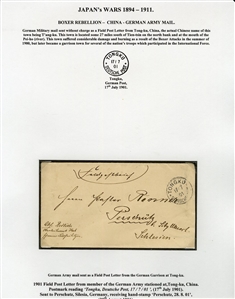 JAPAN'S WARS 1894 – 1911.
BOXER REBELLION – CHINA – GERMAN ARMY MAIL.
German Military mail sent without charge as a Field Post Letter from Tong-ku, China, the actual Chinese name of this
town being T'ang-ku. This town is located some 27 miles south of Tien-tsin on the north bank and at the mouth of the
Pei-ho (river). This town suffered considerable damage and burning as a result of the Boxer Attacks in the summer of
1900, but later became a garrison town for several of the nation's troops which participated in the International Force.
TONGKU
17/7
01
Tongku Post.
17th July 1901.
TONGKU
17/7
01
German Army mail sent as a Field Post Letter from the German Garrison at Tong-ku.
1901 Field Post Letter from member of the German Army stationed at Tong-ku, China.
Postmark reading 'Tongku, Deutsche Post, 17/7/01', (17th July 1901).
Sent to Perschutz, Silesia, Germany, receiving hand-stamp 'Perschutz, 28. 8. 01',